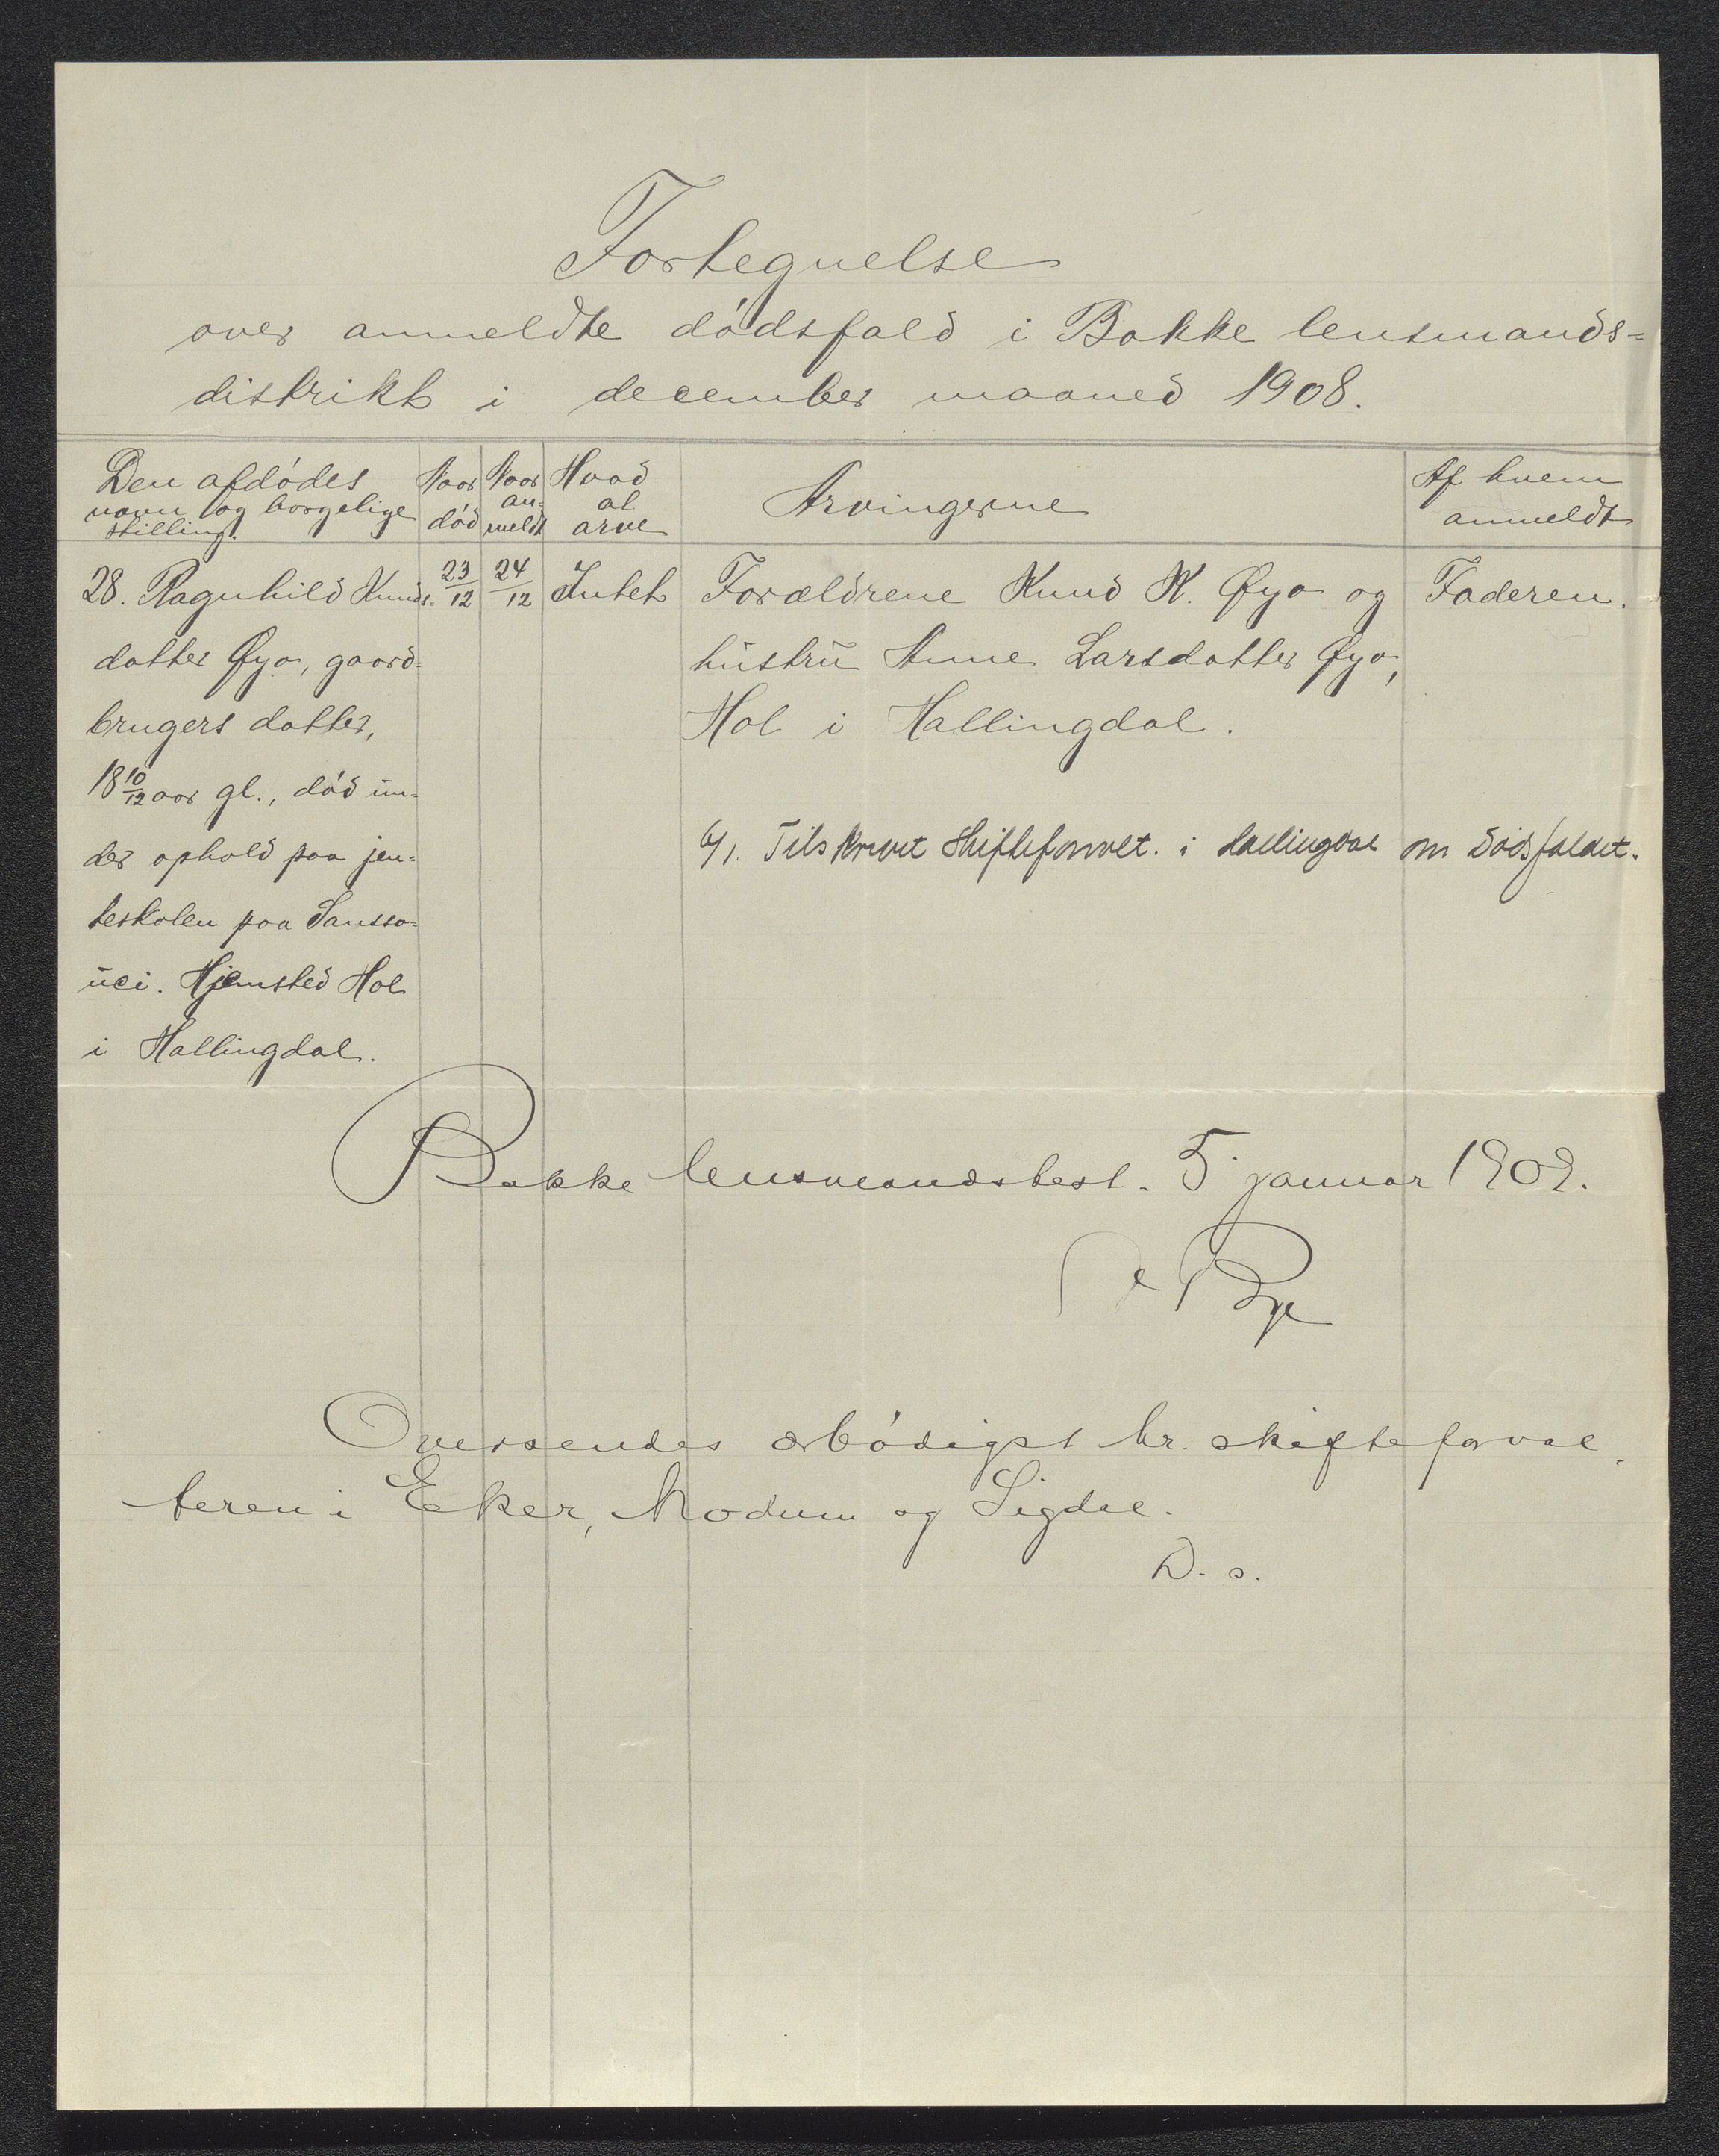 Fortegnelse
over anmeldte dódsfald i Bakke lensmands=
distrikt i december maaned 1908.
Den afdódes
navn og borgelige
stilling.
Naar
död
Naar
an-
meldt
Hvad
at
arve
Arvingerne
Af hvem
anmeldt
28. Ragnhild Knuds=
datter Øya, gaard=
brugers datter,
18 10/12 aar gl., död un=
der ophold paa jen=
teskolen paa Sansso=
uci. Hjemsted Hol
i Hallingdal.
23/12
24/12
Intet
Forældrene Knud K. Øya og
hustru Anne Larsdatter Øya,
Hol i Hallingdal.
Faderen.
6/1. Tilskrevet skifteforvalt. i Hallingdal om dödsfaldet.
Bakke lensmandsbest. 5 januar 1909.
Bye
Oversendes ærbödigst hr. skifteforval
teren i Eker, Modum og Sigdal.
D. s.